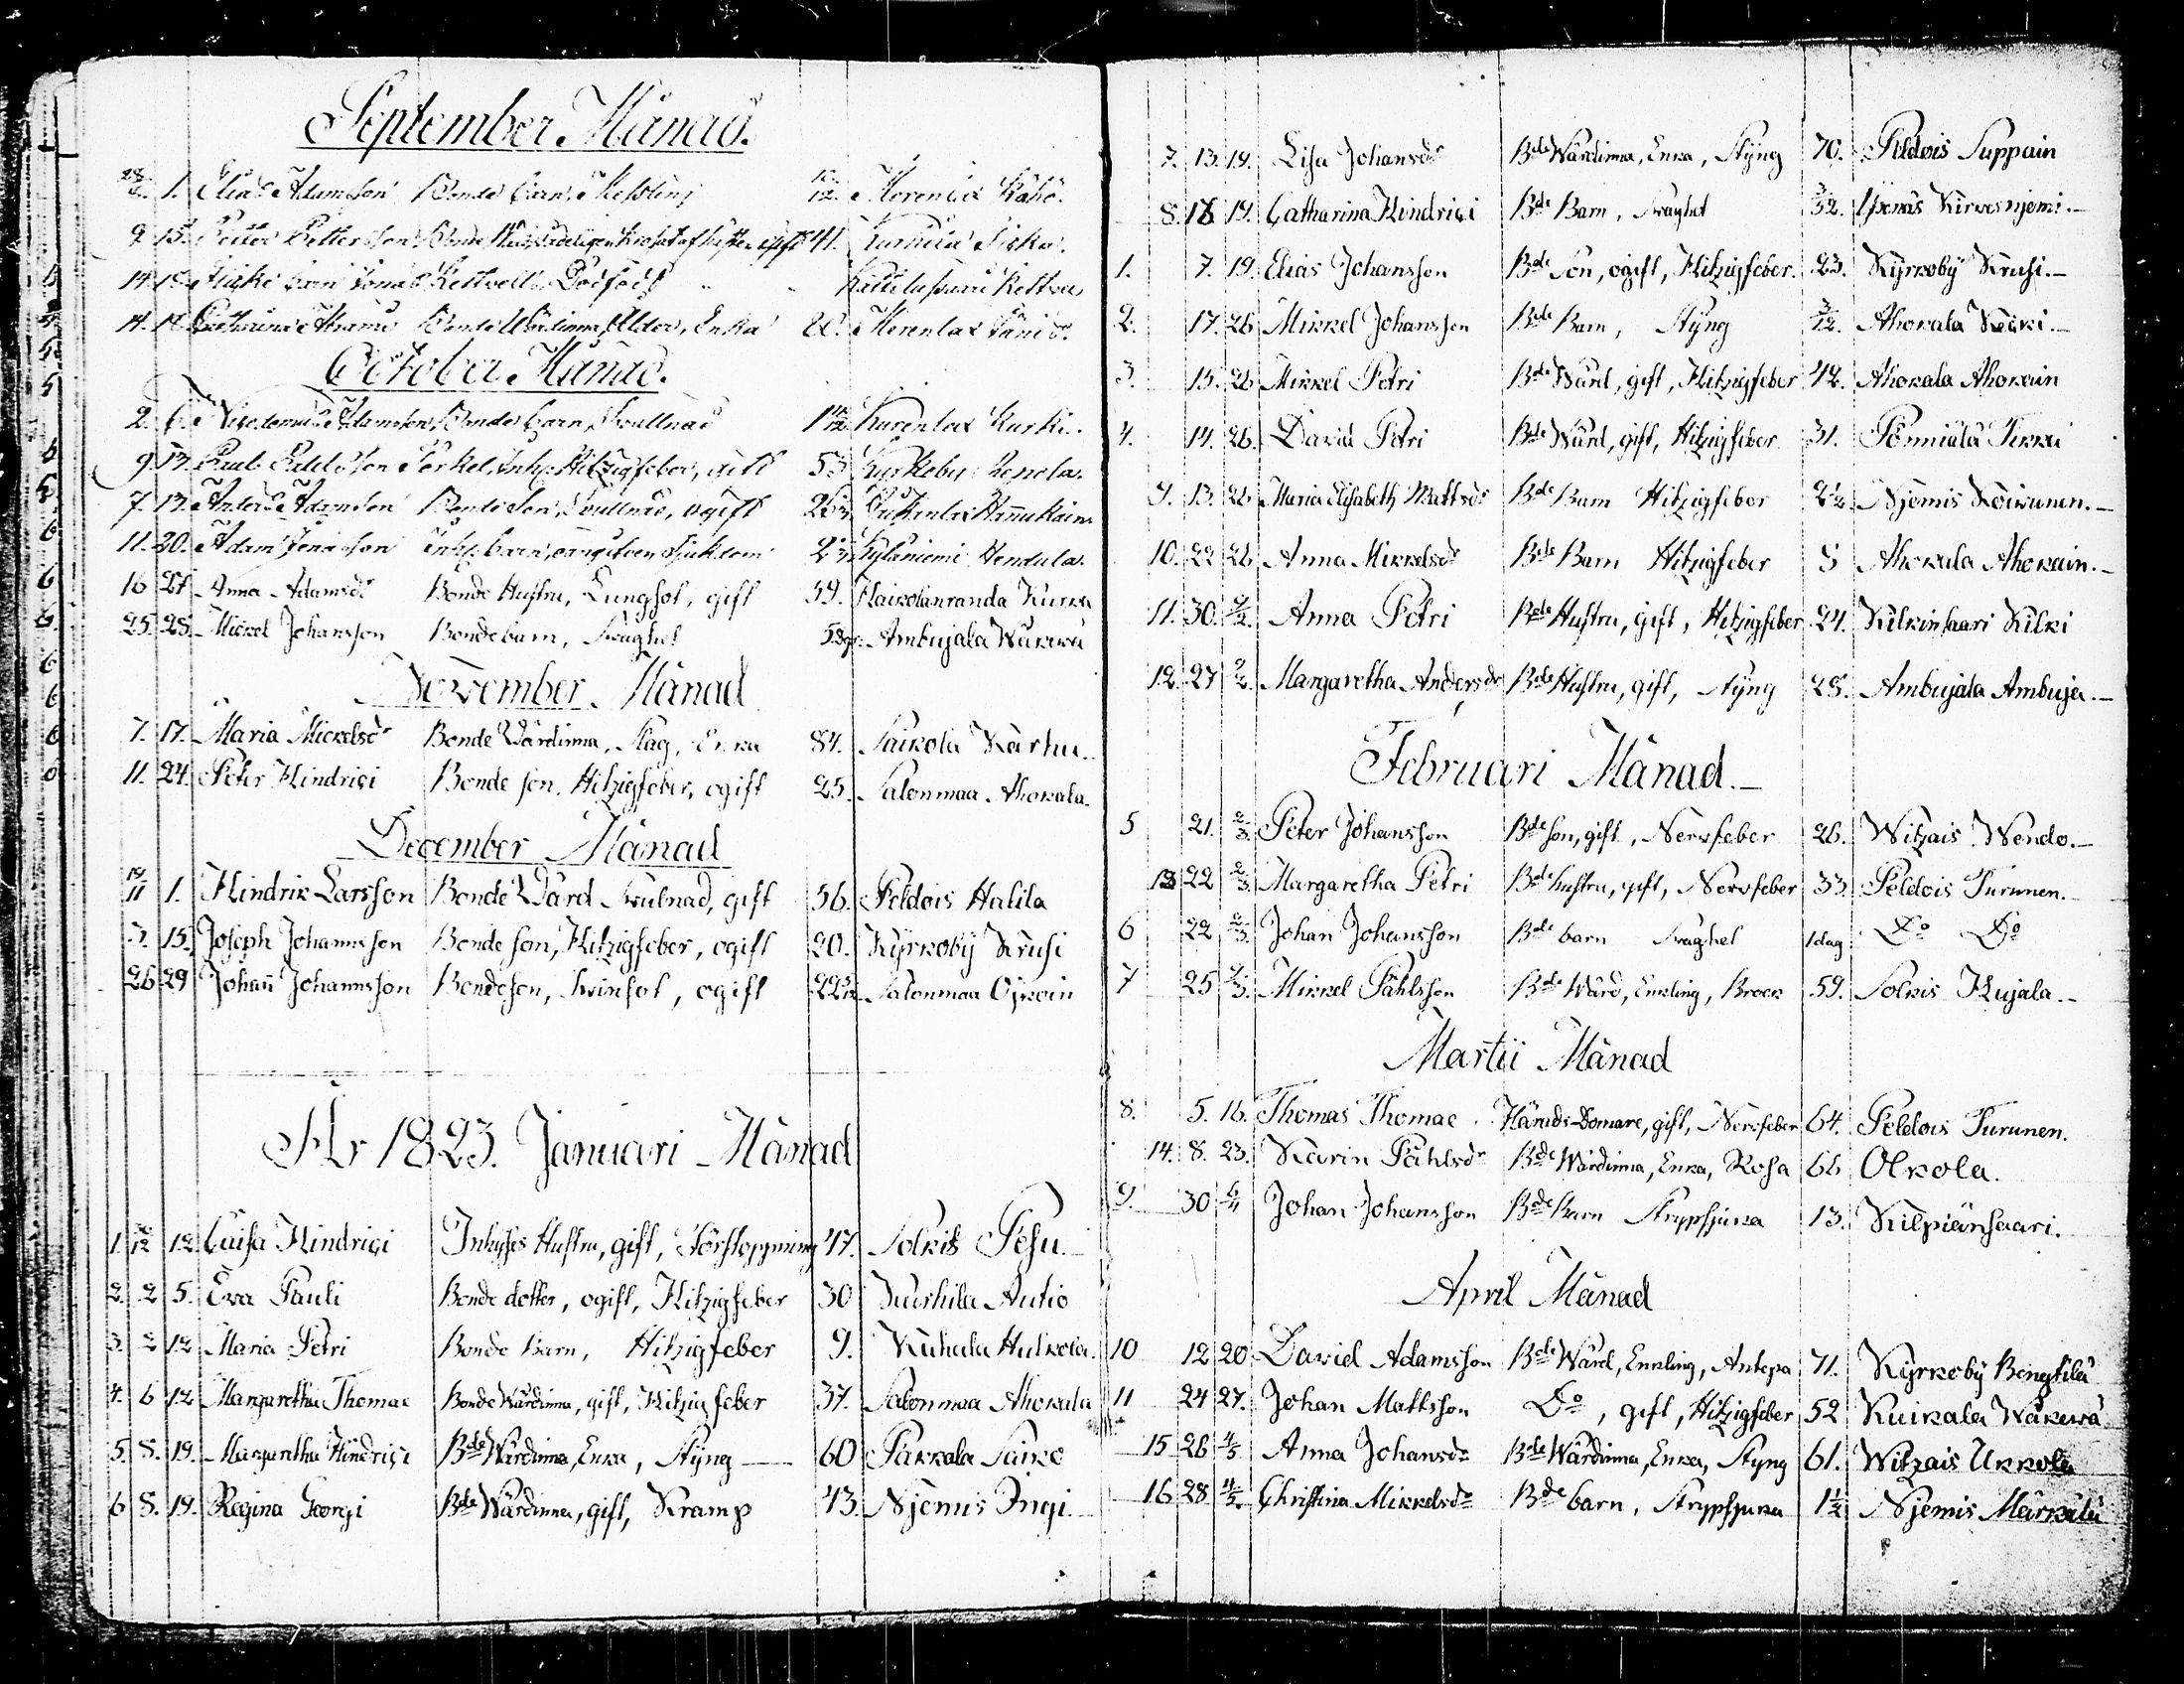 September Månad.
28/8. 1. Elias Adamsson Bonde barn, Messling 10/12. Morenlax
9. 15. Petter Pettersson Bonde 41. Kurhila Sirka.
14. 15. barn Jonas Kettvell, Dödföd Kettve
14. 18. Catharina Bonde Wärdinna, Ålder, Enka 80.
October Månad.
2. 6. Nicodemus Adamsson Bonde barn, Svullnad 1 Kurenlax Kurki.
9 13. Paul Torkel, Inh. Hitzigfeber, gift 53 Kyrkoby
7. 13. Anders Adamsson Bonde Son, Svullnad, ogift Hannukain
11. 20. Adam Jonasson Inhs. barn, omgifven sjukdom Kyläniemi Vendula.
16 27 Anna Adamsdr Bonde Hustru, Lungsot, gift 59. Haikolanranda Kurka
25. 28. Mickel Johansson Bonde barn, Svaghet Ambujala Wäkevä
November Månad
7. 17. Maria Mickelsdr Bonde Wärdinna, Slag, Enka 84. Saikola Karhu.
11. 24. Peter Hindrici Bonde son, Hitzigfeber, ogift 25. Salonmaa Ahokala.
December Månad
19/11 1. Hindrik Larsson Bonde Värd Svulnad, gift 56. Peldois Halila
3. 15. Joseph Johannsson Bonde son, Hitzigfeber, ogift 20. Kyrkoby Krusi
26 29 Johan Johannsson Bondeson, Tvinsot, ogift Salonmaa Ojkoin
År 1823. Januari Månad
1. 12 Caisa Hindrici Inhyses Hustru, gift, Förstoppning 47. Solkis Pesu.
2. 2 5. Eva Pauli Bonde dotter, ogift, Hitzigfeber 30 Kurhila Autio
3. 2 12 Maria Petri Bonde Barn, Hitzigfeber 9. Kuhala Hulkola.
4. 6 12 Margaretha Thomae Bonde Wärdinna, gift, Hitzigfeber 37. Salonmaa Ahokala
5. 8. 19. Margaretha Hindrici Bde Wärdinna, Enka, Styng — 60 Pakkala Saiko
6 8. 19. Regina Georgi Bde Wärdinna, gift, Kramp 43. Njemis Ingi.
7. 13. 19. Lisa Johansdr Bde Wärdinna, Enka, Styng 70. Peldois Suppain
8. 18 19. Catharina Hindrici Bde Barn, Svaghet Kirvesnjemi.—
1. 7. 19. Elias Johansson Bde Son, ogift, Hitzigfeber. 23. Kyrkoby Krusi.—
2. 17. 26 Mikkel Johansson Bde Barn, Styng 3/12. Ahokala Käki.—
3. 15. 26 Mikkel Petri Bde Wärd, gift, Hitzigfeber 42. Ahokala Ahokain
4. 14. 26. David Petri Bde Wärd, gift, Hitzigfeber 31. Pönniälä Tikka
9. 13. 26 Maria Elisabeth Mattsdr Bde Barn Hitzigfeber 2½. Njemis Koivunen.—
10. 22 26 Anna Mikkelsdr Bde Barn Hitzigfeber 8 Ahokala Ahokain.—
11. 30. 2/2. Anna Petri Bde Hustru, gift, Hitzigfeber 24. Kilkinsaari Kilki
12. 27 2/2. Margaretha Andersdr Bde Hustru, gift, Styng 28. Ambujala Ambuja.—
Februari Månad.—
5 21. 2/3. Peter Johansson Bde son, gift, Nervfeber 26. Witzais Wendo.—
13 22 2/3. Margaretha Petri Bde hustru, gift, Nervfeber 33. Peldois Turunen.
6 22 2/3. Johan Johansson Bde barn Svaghet 1 dag Do Do
7 25 2/3. Mikkel Påhlsson Bde Wärd, Enkling, Brock 59. Solkis Kujala.—
Martii Månad
8. 5. 16. Thomas Thomae Härads-Domare, gift, Nervfeber 64. Peldois Turunen.
14. 8. 23. Karin Påhlsdr Bde Wärdinna, Enka, Rosa 66 Olkola.
9. 30 6/4 Johan Johansson Bde Barn Strypsjuka 13. Kilpiänsaari.
April Månad
10 12 20 David Adamsson Bde Wärd, Enkling, Antepa 71. Kyrkoby Bengtilä
11 24 27. Johan Mattsson Do, gift, Hitzigfeber 52 Kuikala Wäkevä
15 26 4/5 Anna Johansdr Bde Wärdinna, Enka, Styng 61. Witzais Ukkola
16 28 4/5. Christina Mikkelsdr Bde barn, Strypsjuka 1½ Njemis Märkälä